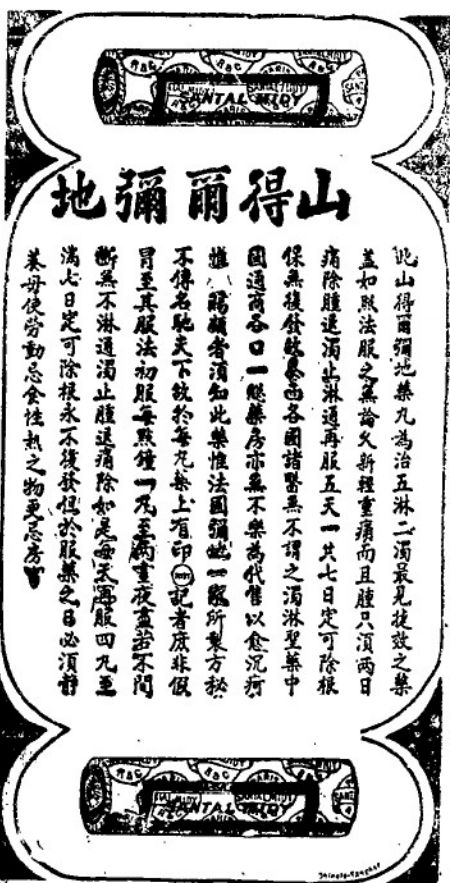 SANTAL MIDY
山得爾彌地
此山得爾彌地藥丸為治五淋二濁最見捷效之藥
蓋如照法服之無論久新輕重痛而且腫只須兩日
痛除腫退濁止淋通再服五天一共七日定可除根
保無復發故泰西各國諸醫無不謂之濁淋聖藥中
國通商各口一總藥房亦無不樂為代售以愈沉疴
惟 賜顧者須知此藥惟法國彌地一家所製方秘
不傳名馳天下故於每丸藥上有印 MIDY 記者庶非假
冒至其服法初服每點鐘一丸至兩晝夜盡若不間
斷無不淋通濁止腫退痛除如是每天再服四丸至
滿七日定可除根永不復發但於服藥之日必須靜
養毋使勞動忌食性熱之物更忌房
SANTAL MIDY